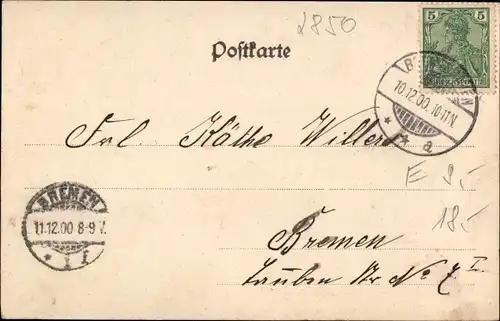 2850
5 5
Postkarte
10.12.00.10-11N.
a
Frl. Käthe Willers
E 9,-
18,-
BREMEN
11.12.00 8-9 V.
* 1 f
Bremen
Tauben Str. No 7 I